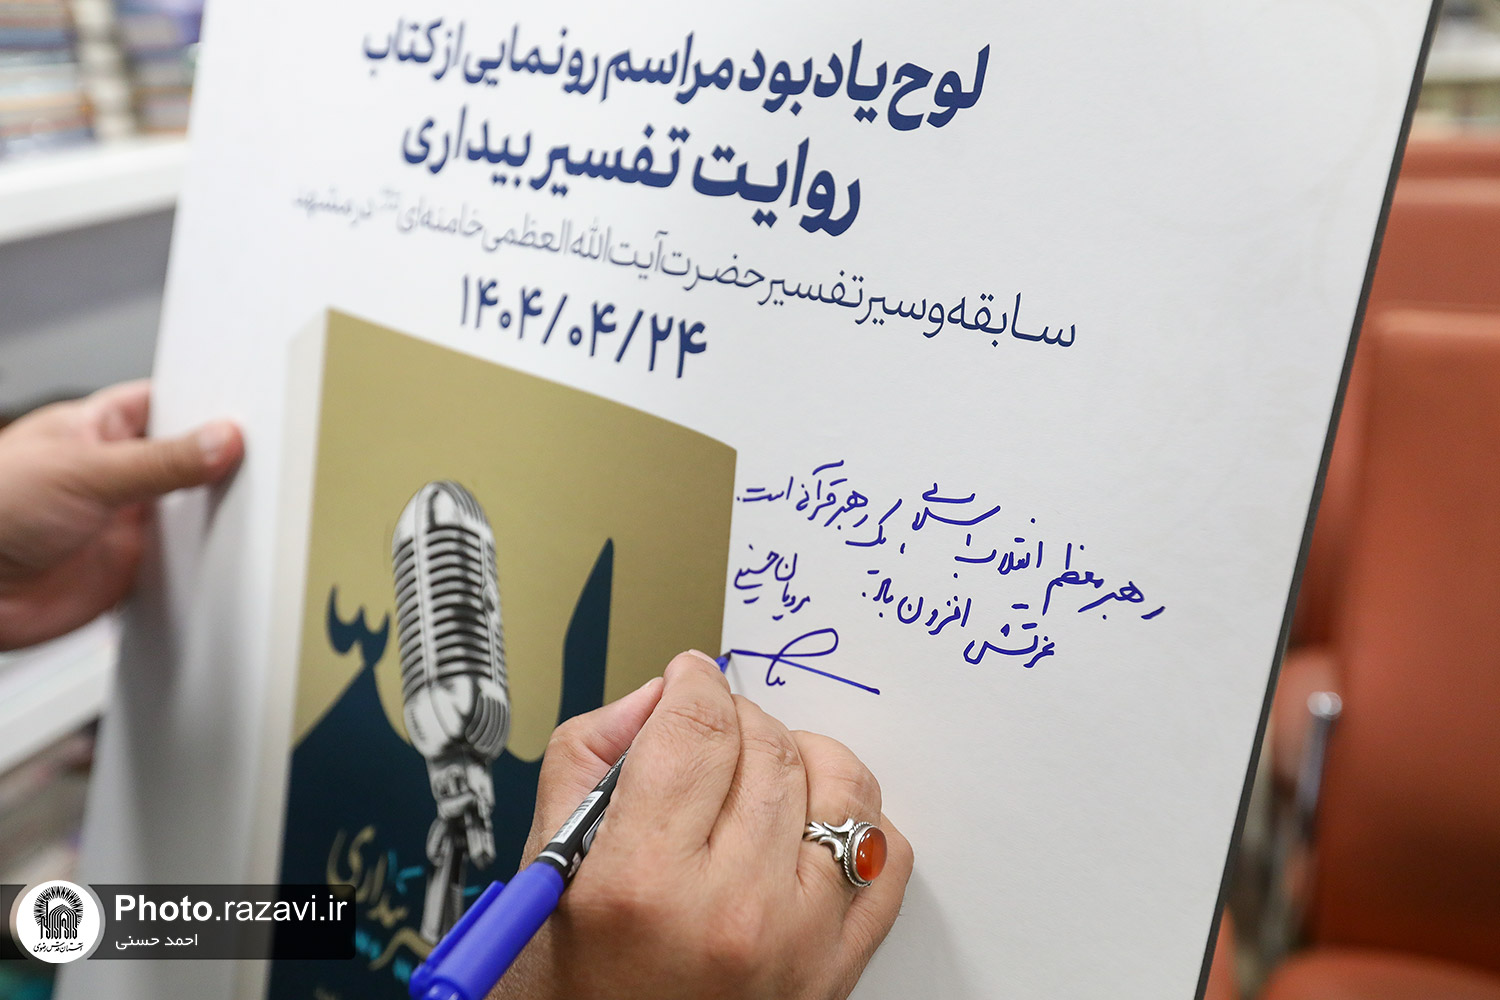 لوح یادبود مراسم رونمایی از کتاب
روایت تفسیر بیداری
سابقه و سیر تفسیر حضرت آیت‌الله العظمی خامنه‌ای در مشهد
۱۴۰۴/۰۴/۲۴
رهبر معظم انقلاب اسلامی، یک رهبر قرآنی است.
عزتش افزون باد.
حسینی
بیداری
Photo.razavi.ir
احمد حسنی
آستان قدس رضوی